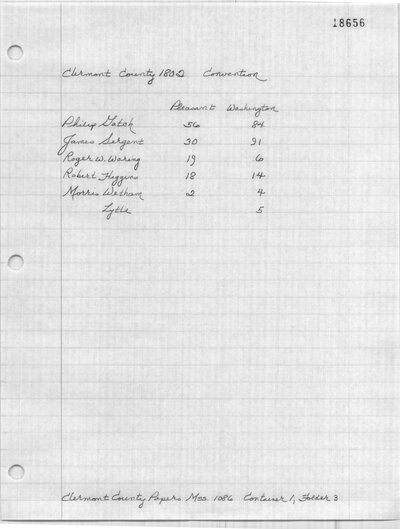 18656
Clermont County 1802 Convention
Pleasant Washington
Philip Gatch 56 84
James Sargent 30 91
Roger W. Waring 19 6
Robert Higgins 18 14
Morris Witham 2 4
Lytle 5
Clermont County Papers Mss. 1086 Container 1, Folder 3